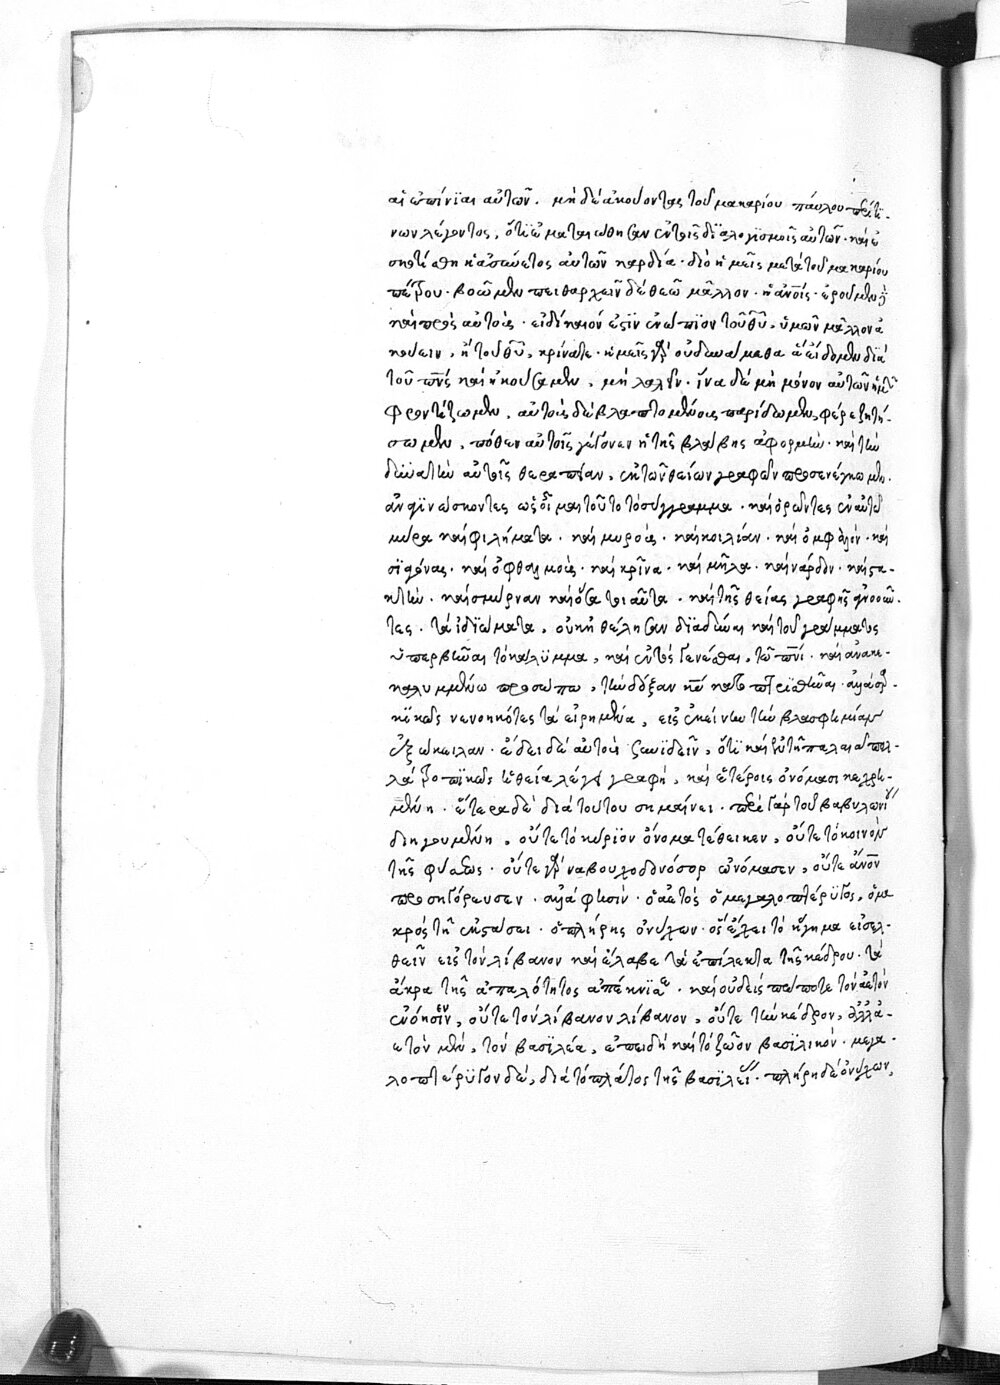 αἱ ἐπίνοιαι αὐτῶν. μὴ δὲ ἀκούοντας τοῦ μακαρίου παύλου περὶ τι-
νων λέγοντος, ὅτι ἐματαιώθησαν ἐν τοῖς διαλογισμοῖς αὐτῶν· καὶ ἐ
σκοτίσθη ἡ ἀσύνετος αὐτῶν καρδία· διὸ ἡμεῖς μετὰ τοῦ μακαρίου
πέτρου· βοῶμεν πειθαρχεῖν δὲ θεῶ μᾶλλον· ἢ ἀνοῖς· ἐροῦμεν δὲ
καὶ πρὸς αὐτοὺς· εἰ δίκαιόν ἐστιν ἐνώπιον τοῦ θῦ, ὑμῶν μᾶλλον ἀ
κούειν, ἢ τοῦ θῦ, κρίνατε· ἡμεῖς γὰρ οὐ δυνάμεθα ἃ εἴδομεν διὰ
τοῦ πνς καὶ ἠκούσαμεν, μὴ λαλεῖν. ἵνα δὲ μὴ μόνον αὐτῶν ἡμεῖς
φροντίζωμεν, αὐτοὺς δὲ βλαπτομένους παρίδωμεν, φέρε ζητή-
σωμεν, πόθεν αὐτοῖς γέγονεν ἡ τῆς βλάβης ἀφορμὴ· καὶ τὴν
δυνατὴν αὐτοῖς θεραπείαν, ἐκ τῶν θείων γραφῶν προσενέγκωμεν.
ἀναγινώσκοντες ὡς οἶμαι τοῦτο τὸ σύγγραμμα· καὶ ὁρῶντες ἐν αὐτῶ
μύρα καὶ φιλήματα· καὶ μηροὺς· καὶ κοιλίαν· καὶ ὀμφαλὸν· καὶ
σιαγόνας· καὶ ὀφθαλμοὺς· καὶ κρίνα· καὶ μῆλα· καὶ νάρδον· καὶ στα-
κτὴν· καὶ σμύρναν καὶ ὅσα τοιαῦτα· καὶ τῆς θείας γραφῆς ἀγνοοῦν-
τες· τὰ ἰδιώματα, οὐκ ἠθέλησαν διαδῦναι καὶ τοῦ γράμματος
ὑπερβῆναι τὸ κάλυμμα, καὶ ἐντὸς γενέσθαι, τῶ πνι· καὶ ἀνακε-
καλυμμένω προσώπω, τὴν δόξαν κυ κατοπτρισθῆναι· ἀλλὰ σαρ-
κικῶς νενοηκότες τὰ εἰρημένα, εἰς ἐκείνην τὴν βλασφημίαν
ἐξώκειλαν· ἔδει δὲ αὐτοὺς συνϊδεῖν, ὅτι καὶ ἐν τῆ παλαιᾶ πολ-
λὰ τροπικῶς ἡ θεία λέγει γραφὴ, καὶ ἑτέροις ὀνόμασι κεχρη-
μένη· ἕτερα δὲ διὰ τούτου σημαίνει· περὶ γὰρ τοῦ βαβυλωνίου
διηγουμένη, οὔτε τὸ κύριον ὄνομα τέθεικεν, οὔτε τὸ κοινὸν
τῆς φύσεως· οὔτε γὰρ ναβουχοδονόσορ ὠνόμασεν, οὔτε ἄνον
προσηγόρευσεν· ἀλλὰ φησὶν· ὁ ἀετὸς ὁ μεγαλοπτέρυγος, ὁ μα
κρὸς τῆ ἐκτάσει· ὁ πλήρης ὀνύχων· ὃς ἔχει τὸ ἥγημα εἰσελ-
θεῖν εἰς τὸν λίβανον καὶ ἔλαβε τὰ ἐπίλεκτα τῆς κέδρου· τὰ
ἄκρα τῆς ἁπαλότητος ἀπέκνισε· καὶ οὐδεὶς πώποτε τὸν ἀετὸν
ἐνόησεν, οὔτε τὸν λίβανον λίβανον, οὔτε τὴν κέδρον, ἀλλὰ ἀ-
ετὸν μὲν, τὸν βασιλέα, ἐπειδὴ καὶ τὸ ζῶον βασιλικὸν· μεγα-
λοπτέρυγον δὲ, διὰ τὸ πλάτος τῆς βασιλείας· πλήρη δὲ ὀνύχων,